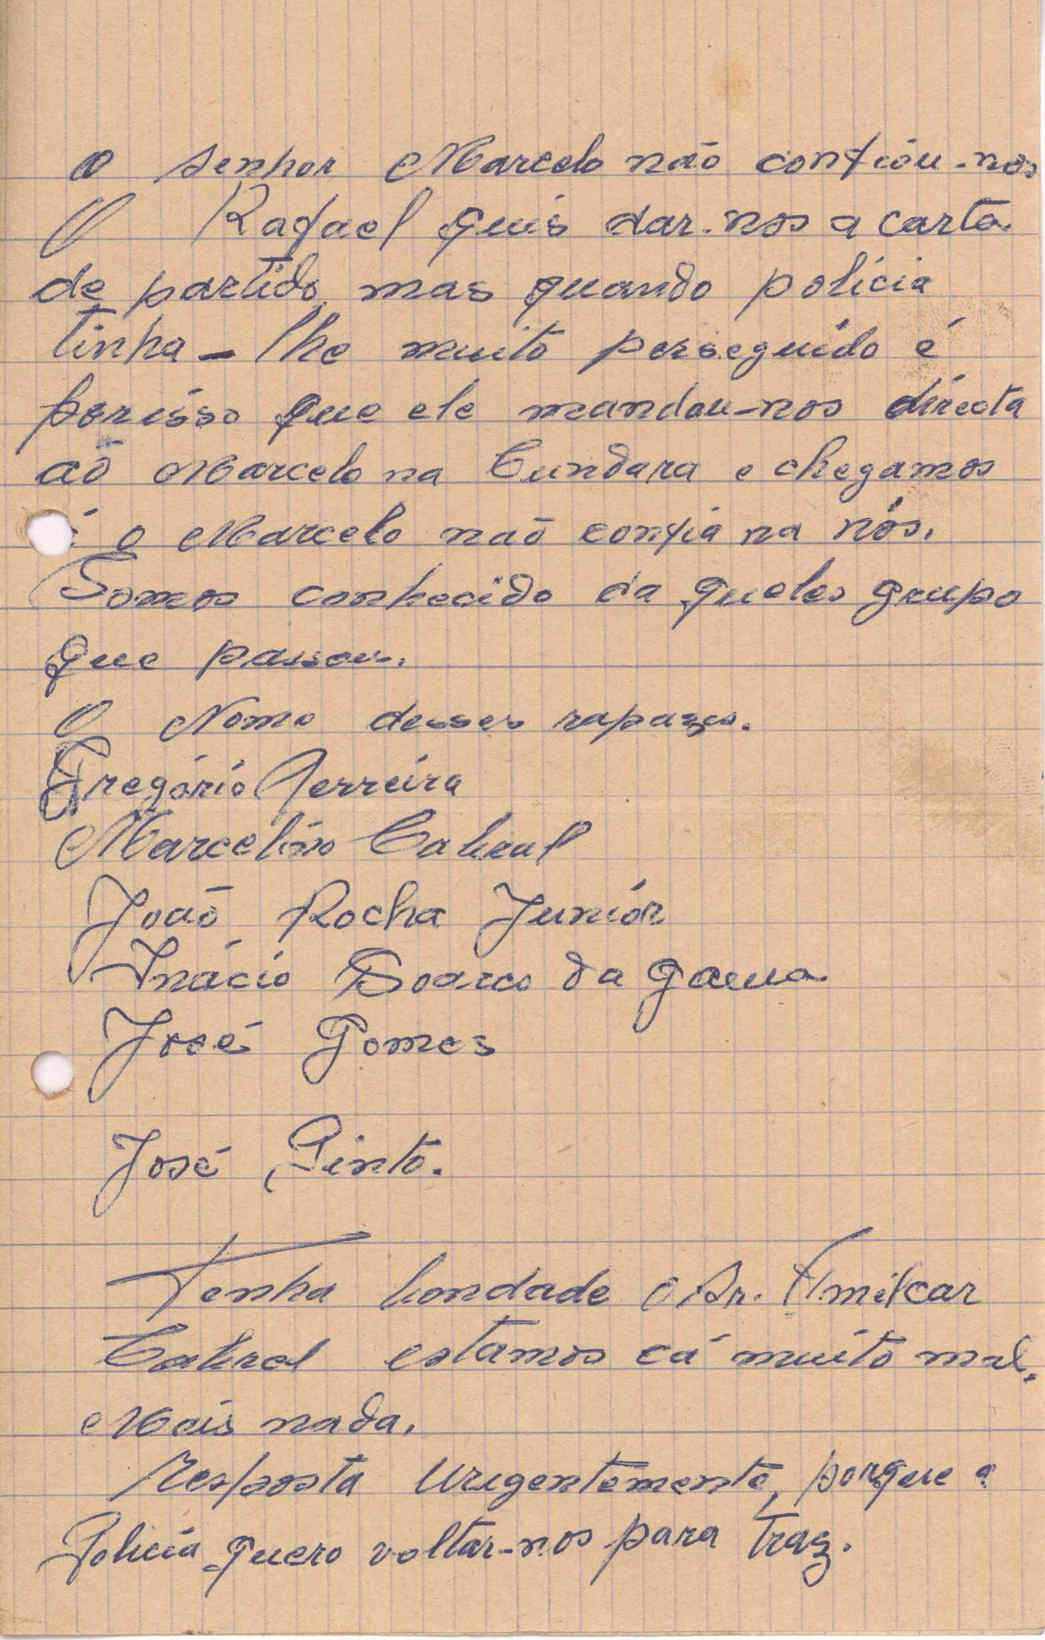 O senhor Marcelo não confiou-nos
O Rafael quis dar-nos a carta
de partido, mas quando policia
tinha-lhe muito perseguido é
porisso que ele mandou-nos directa
aõ Marcelo na Cundara e chegamos
é o Marcelo não confia na nós.
Somos conhecido da queles grupo
que passou.
O Nome desses rapazes.
Gregório Ferreira
Marcelino Cabral
João Rocha Juniór
Inácio Soares da gama
José Gomes
José Pinto.
Tenha bondade o Sr. Amilcar
Cabral estamos cá muito mal.
Mais nada.
Resposta Urigentemente, porque a
Policia quero voltar-nos para traz.